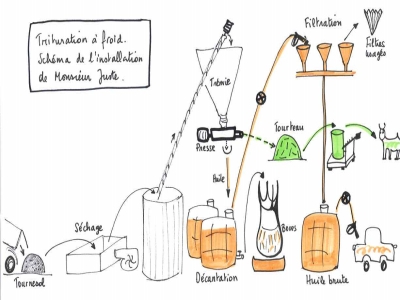 Trituration à froid.
Schéma de l'installation
de Monsieur Juste.
Filtration
Filtres
Trémie
Tourteau
Presse
Huile
Séchage
Boues
Tournesol
Décantation
Huile brute